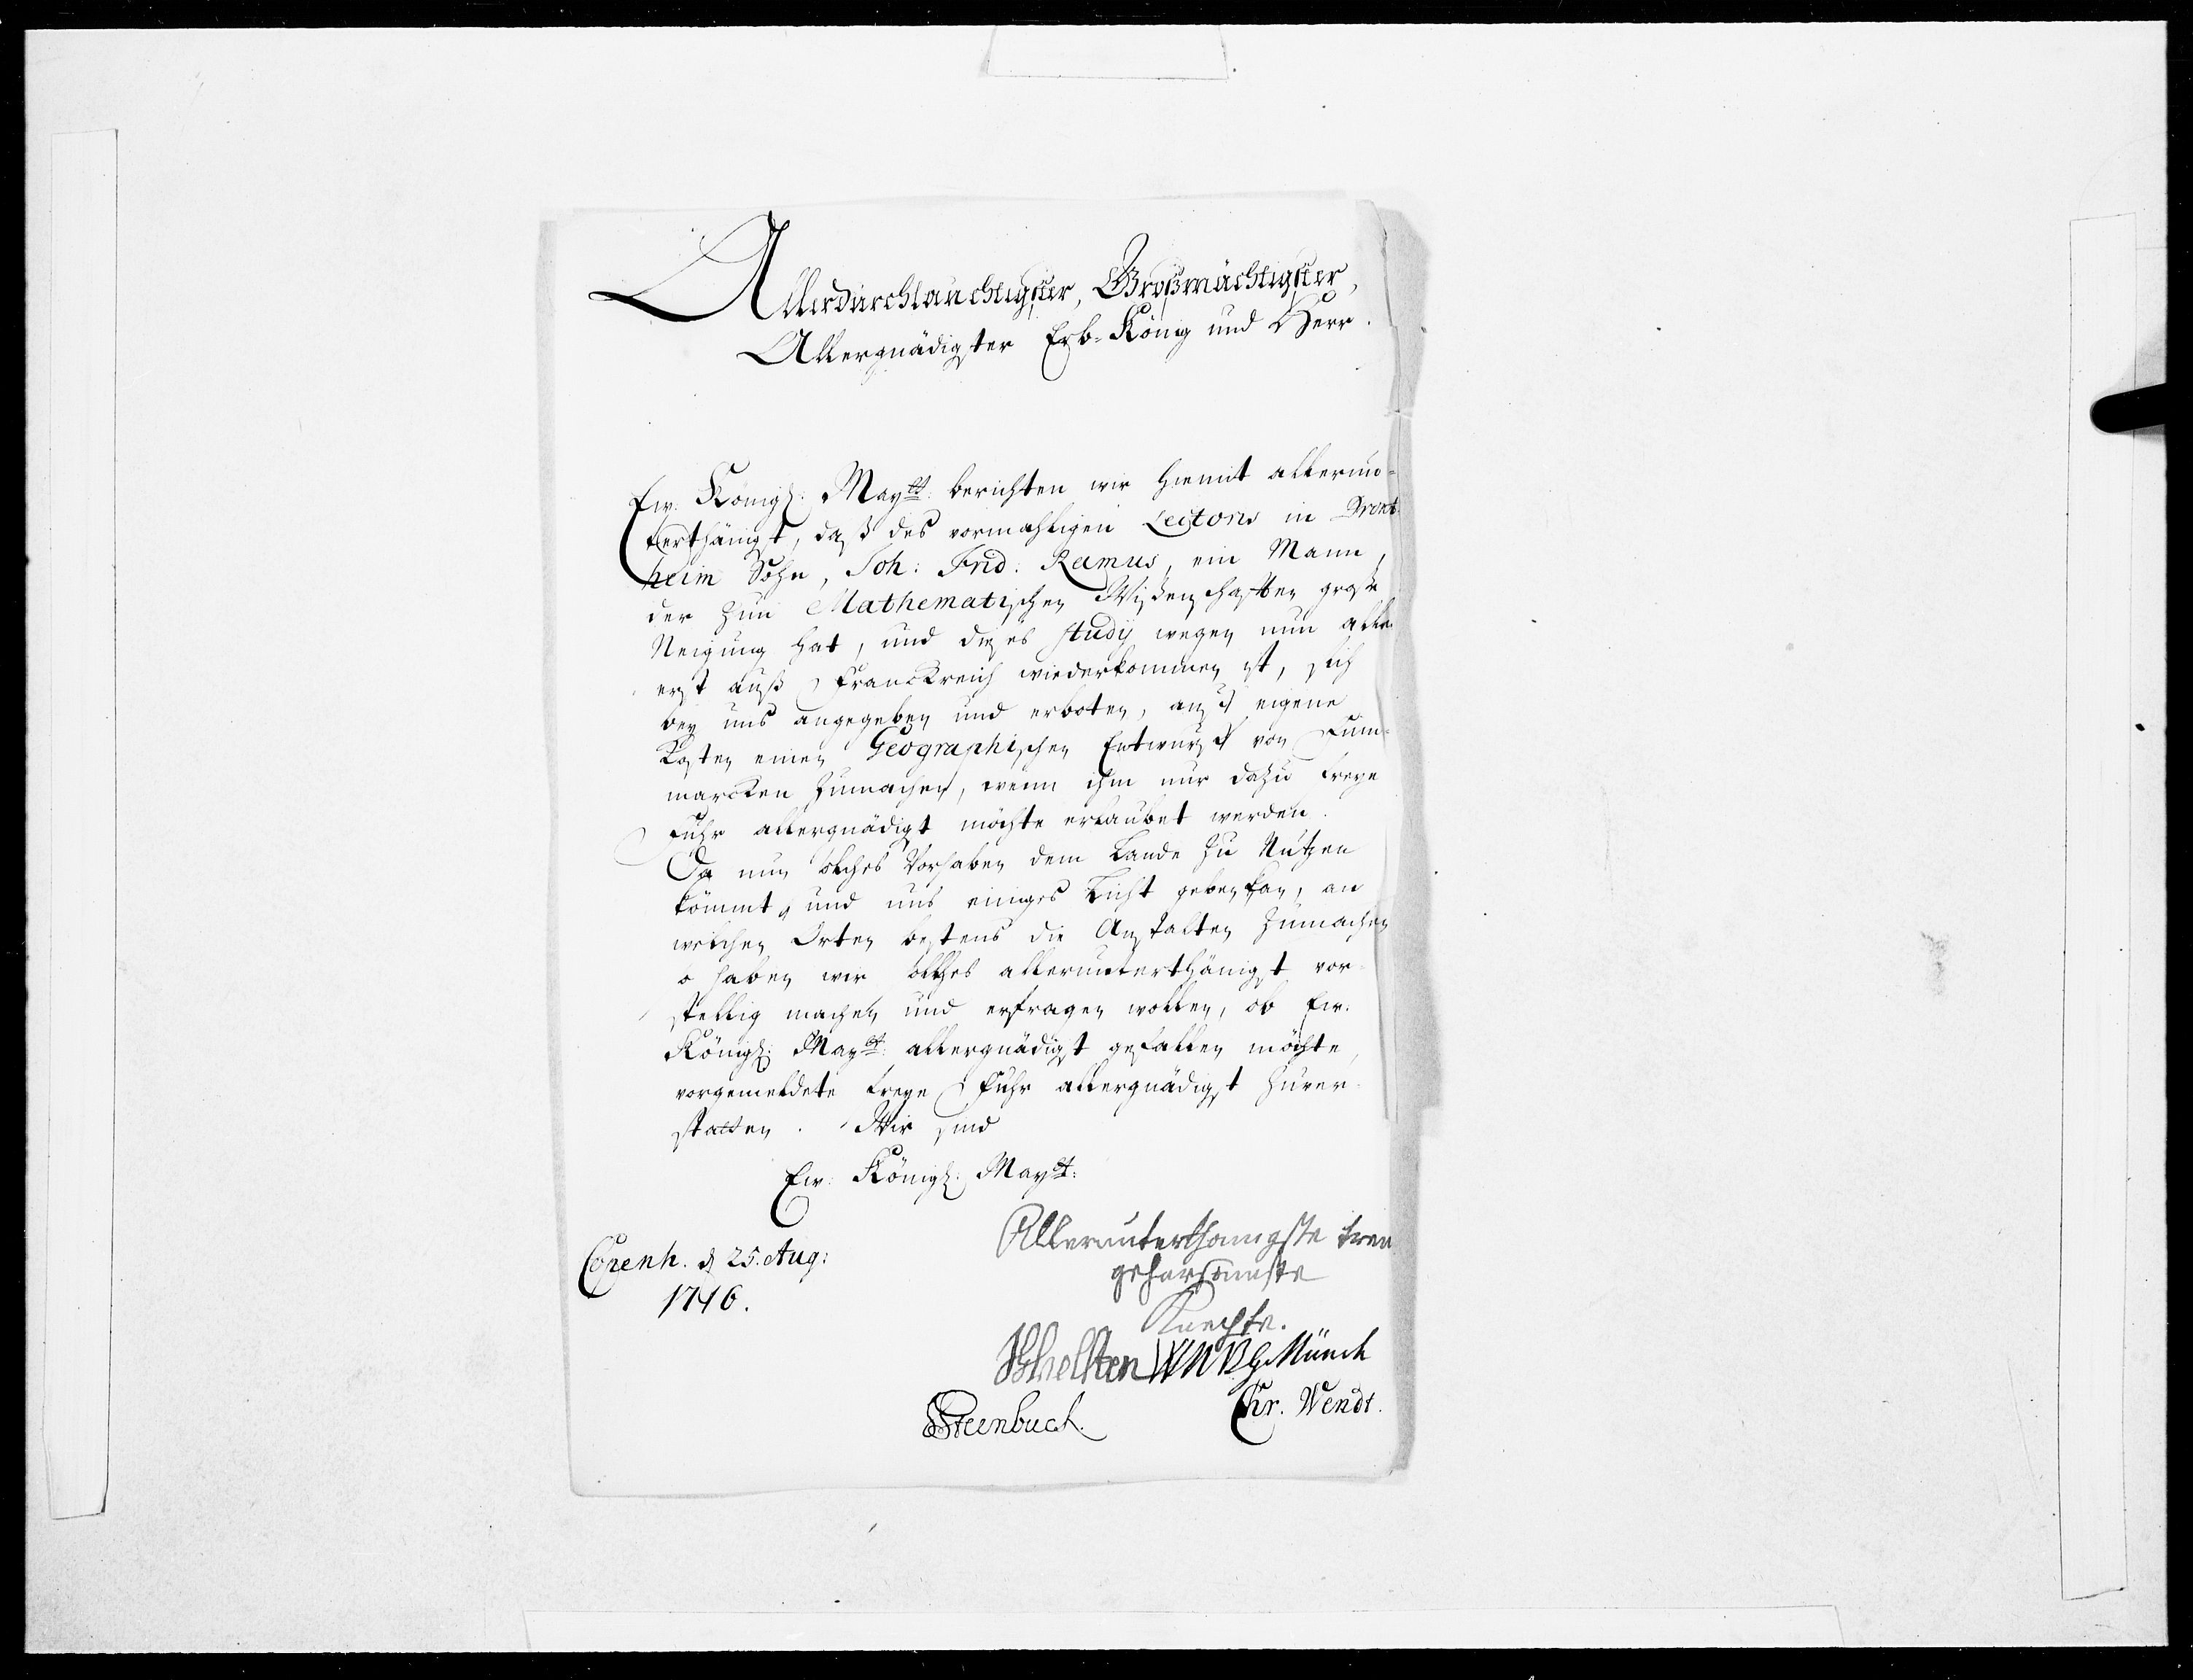 Allerdurchlauchtigster, Großmächtigster,
Allergnädigster Erb-König und Herr.
Ew. Königl: Maytt: berichten wir hiemit allerun-
terthänigst, daß des vormahligen Lectoris in Dront-
heim Sohn, Joh: Frid: Ramus, ein Mann,
der zun Mathematischen Wißenschafften große
Neigung hat, und dieses studij wegen nun aller
erst auß Franckreich wiederkommen ist, sich
bey uns angegeben und erboten, auff eigene
Kosten einen Geographischen Entwurff von Finn-
marcken zumachen, wenn ihm nur dazu freye
Fuhr allergnädigst möchte erlaubet werden.
Da nun solches Vorhaben dem Lande zu Nutzen
kömmt, und uns einiges Licht geben kan, an
welchen Orten bestens die Anstalten zumachen
so haben wir solches allerunterthänigst vor-
stellig machen und erfragen wollen, ob Ew.
Königl: Maytt: allergnädigst gefallen möchte,
vorgemeldete freye Fuhr allergnädigst zuver-
statten. Wir sind
Ew: Königl: Maytt:
Allerunterthänigste treu
gehorsamste
Knechte.
Copenh. d 25. Aug:
1716.
Scholten Münch
Steenbuch. Chr. Wendt.